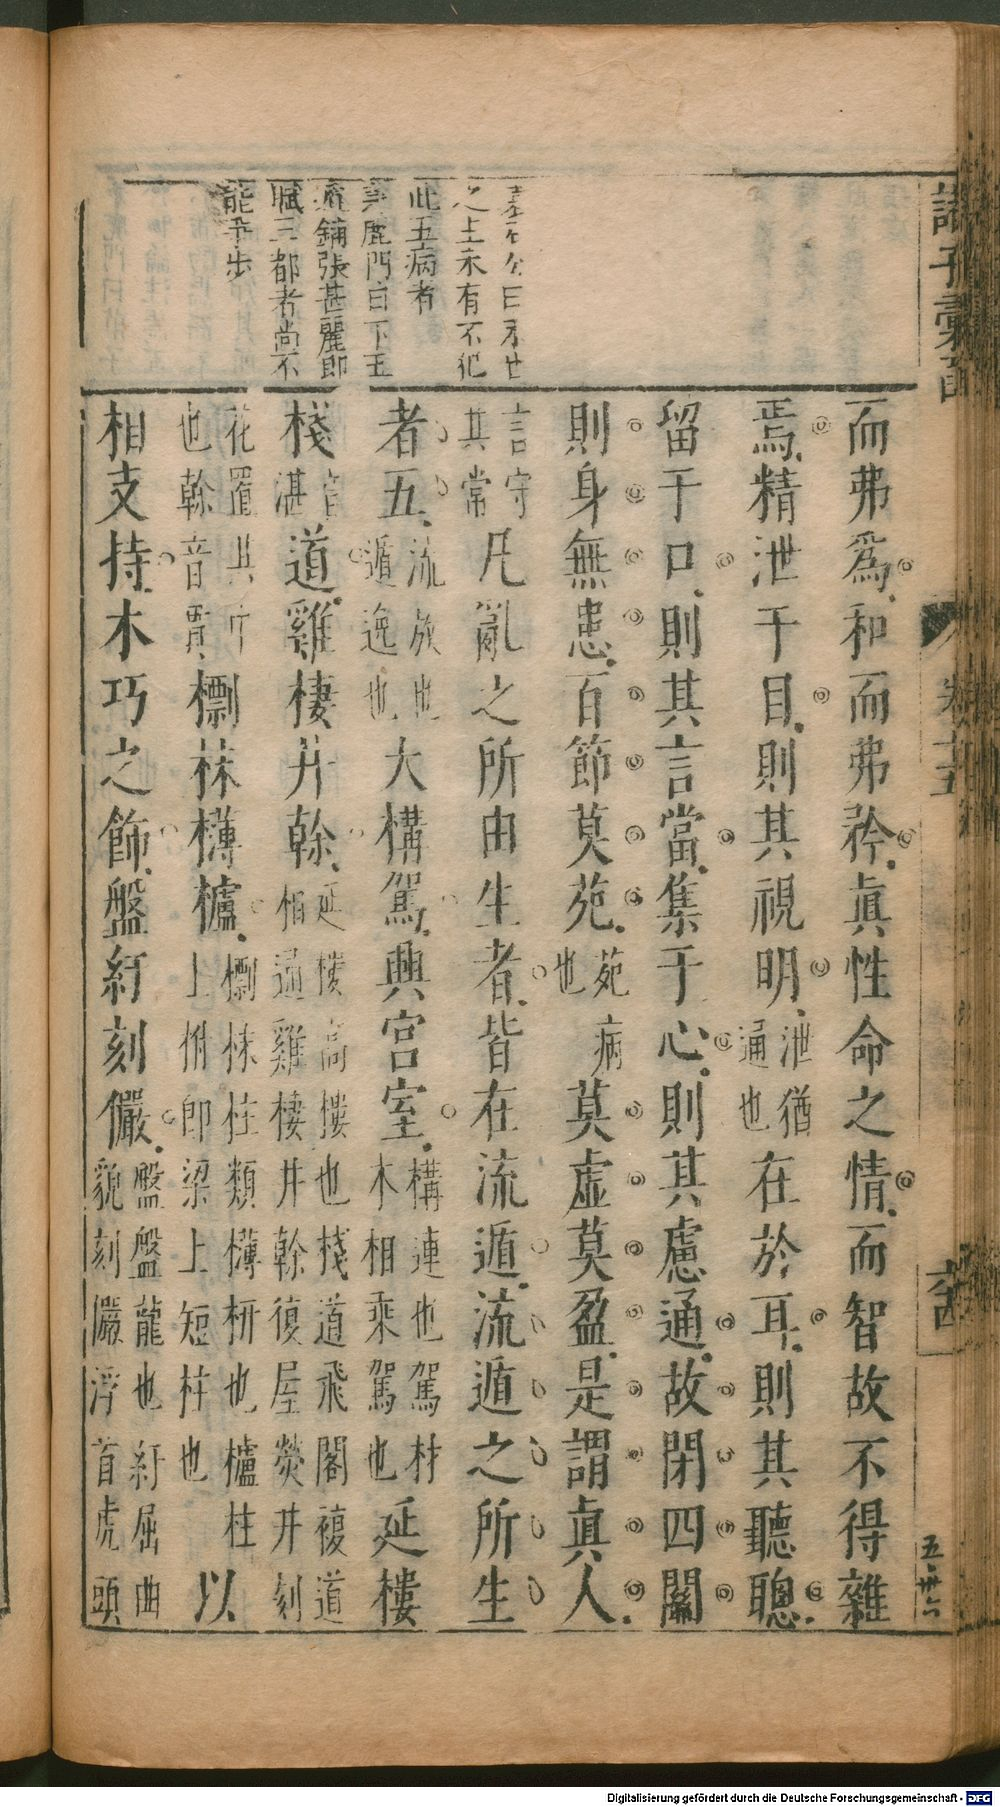 而弗爲和而弗矜眞性命之情而智故不得雜
焉精泄于目則其視明泄猶通也在於耳則其聽聰
留于口則其言當集于心則其慮通故閉四關
則身無患百節莫苑苑病也莫虛莫盈是謂眞人
言守其常凡亂之所由生者皆在流遁流遁之所生
者五流放也遁逸也大構駕興宮室構連也駕材木相乘駕也延樓
棧道雞棲井幹延樓高樓也棧道飛閣複道相通雞棲井幹復屋熒井刻
花置其中也幹音貫標枺欂櫨標枺柱類欂枅也櫨柱上拊即梁上短柱也以
相支持木巧之飾盤紆刻儼盤盤龍也紆屈曲貌刻儼浮首虎頭
之上未有不犯
此五病者
鹿門曰下五
鋪張甚麗即
賦三都者尚不
能平步
諸子彙函
卷十五
五卅六
Digitalisierung gefördert durch die Deutsche Forschungsgemeinschaft - DFG